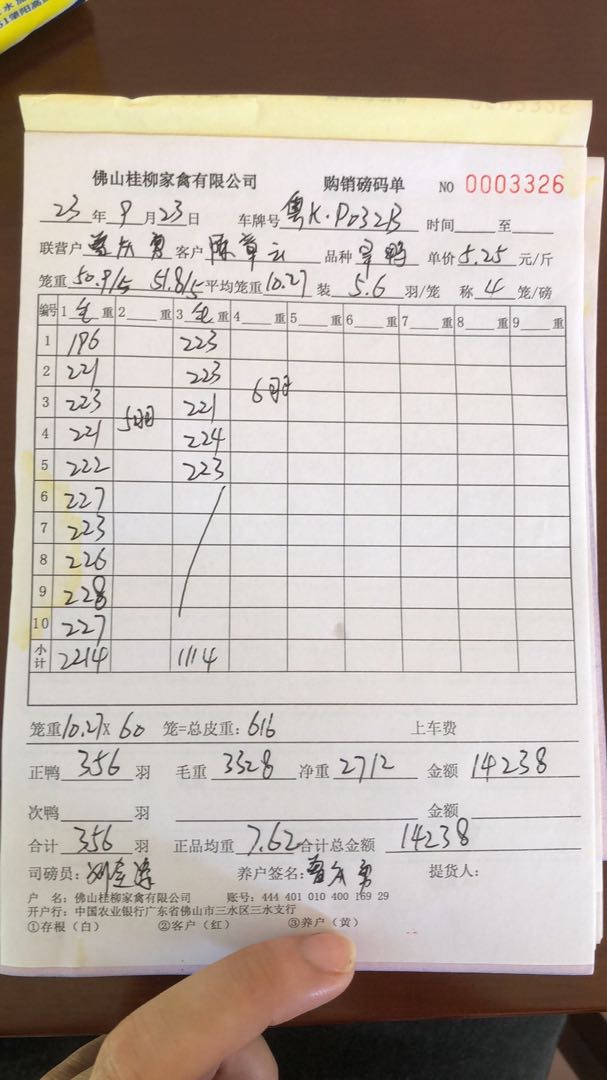 0003326
佛山桂柳家禽有限公司 购销磅码单 NO 0003326
23年9月23日 车牌号 粤K·P032B 时间 至
联营户 客户 陈章云 品种 单价5.25元/斤
笼重50.9/5 51.8/5 平均笼重10.27 装 5.6 羽/笼 称 4 笼/磅
编号 1 毛 重 2 重 3 毛 重 4 重 5 重 6 重 7 重 8 重 9 重
1 196 223
2 221 223
3 223 5羽 221 6羽
4 221 224
5 222 223
6 227
7 223
8 226
9 228
10 227
小计 2214 1114
笼重10.27X 60 笼=总皮重:616 上车费
正鸭 356 羽 毛重 3328 净重 2712 金额 14238
次鸭 羽 金额
合计 356 羽 正品均重 7.62 合计总金额 14238
司磅员: 养户签名: 提货人:
户 名:佛山桂柳家禽有限公司 账号:444 401 010 400 169 29
开户行:中国农业银行广东省佛山市三水区三水支行
①存根(白) ②客户(红) ③养户(黄)